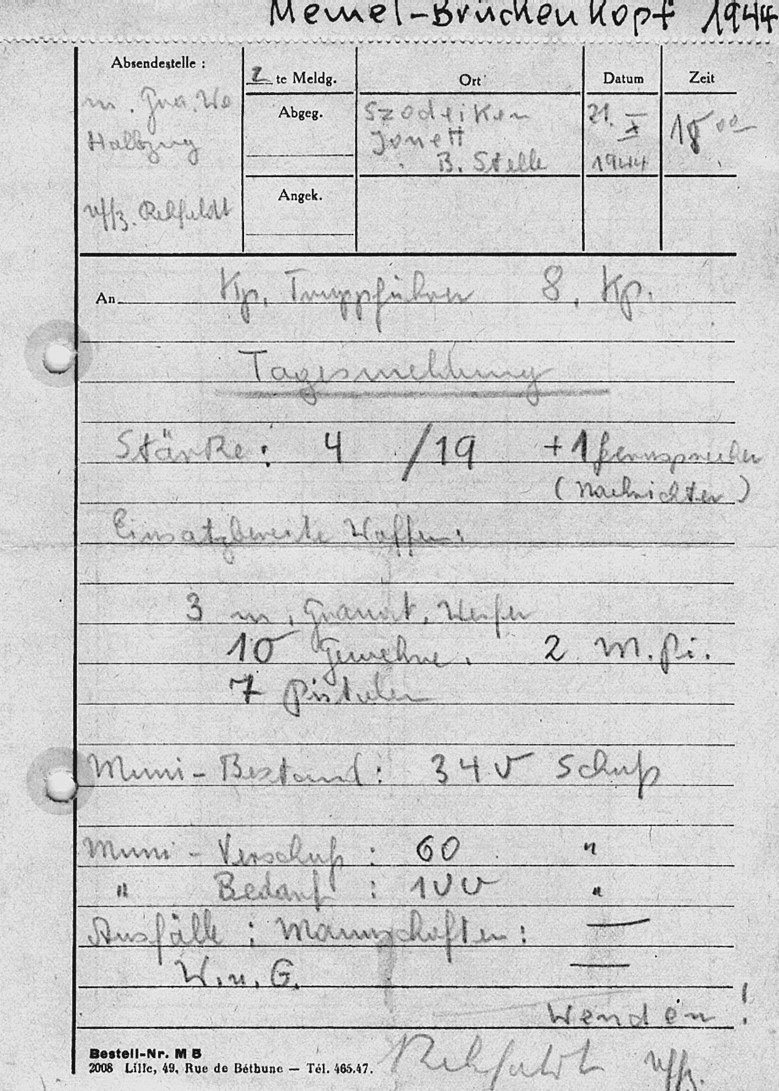 Memel-Brückenkopf 1944
Absendestelle :
2 te Meldg.
Ort
Datum
Zeit
m. Gra. We
Halbzug
Uffz. Rehfeldt
Abgeg.
Szodeiken
Jonett
B. Stelle
21. X
1944
18 00
Angek.
An Kp. Truppführer 8. Kp.
Tagesmeldung
Stärke: 4 /19 +1 Fernsprecher
(Nachrichter)
Einsatzbereite Waffen:
3 m. Granat. Werfer
10 Gewehre. 2 M. Pi.
7 Pistolen
Muni-Bestand: 340 Schuß
Muni-Verschuß : 60 "
" Bedarf : 100 "
Ausfälle : Mannschaften: —
W. u. G. —
Wenden!
Bestell-Nr. M B
2008 Lille, 49, Rue de Béthune — Tél. 465.47.
Rehfeldt Uffz.